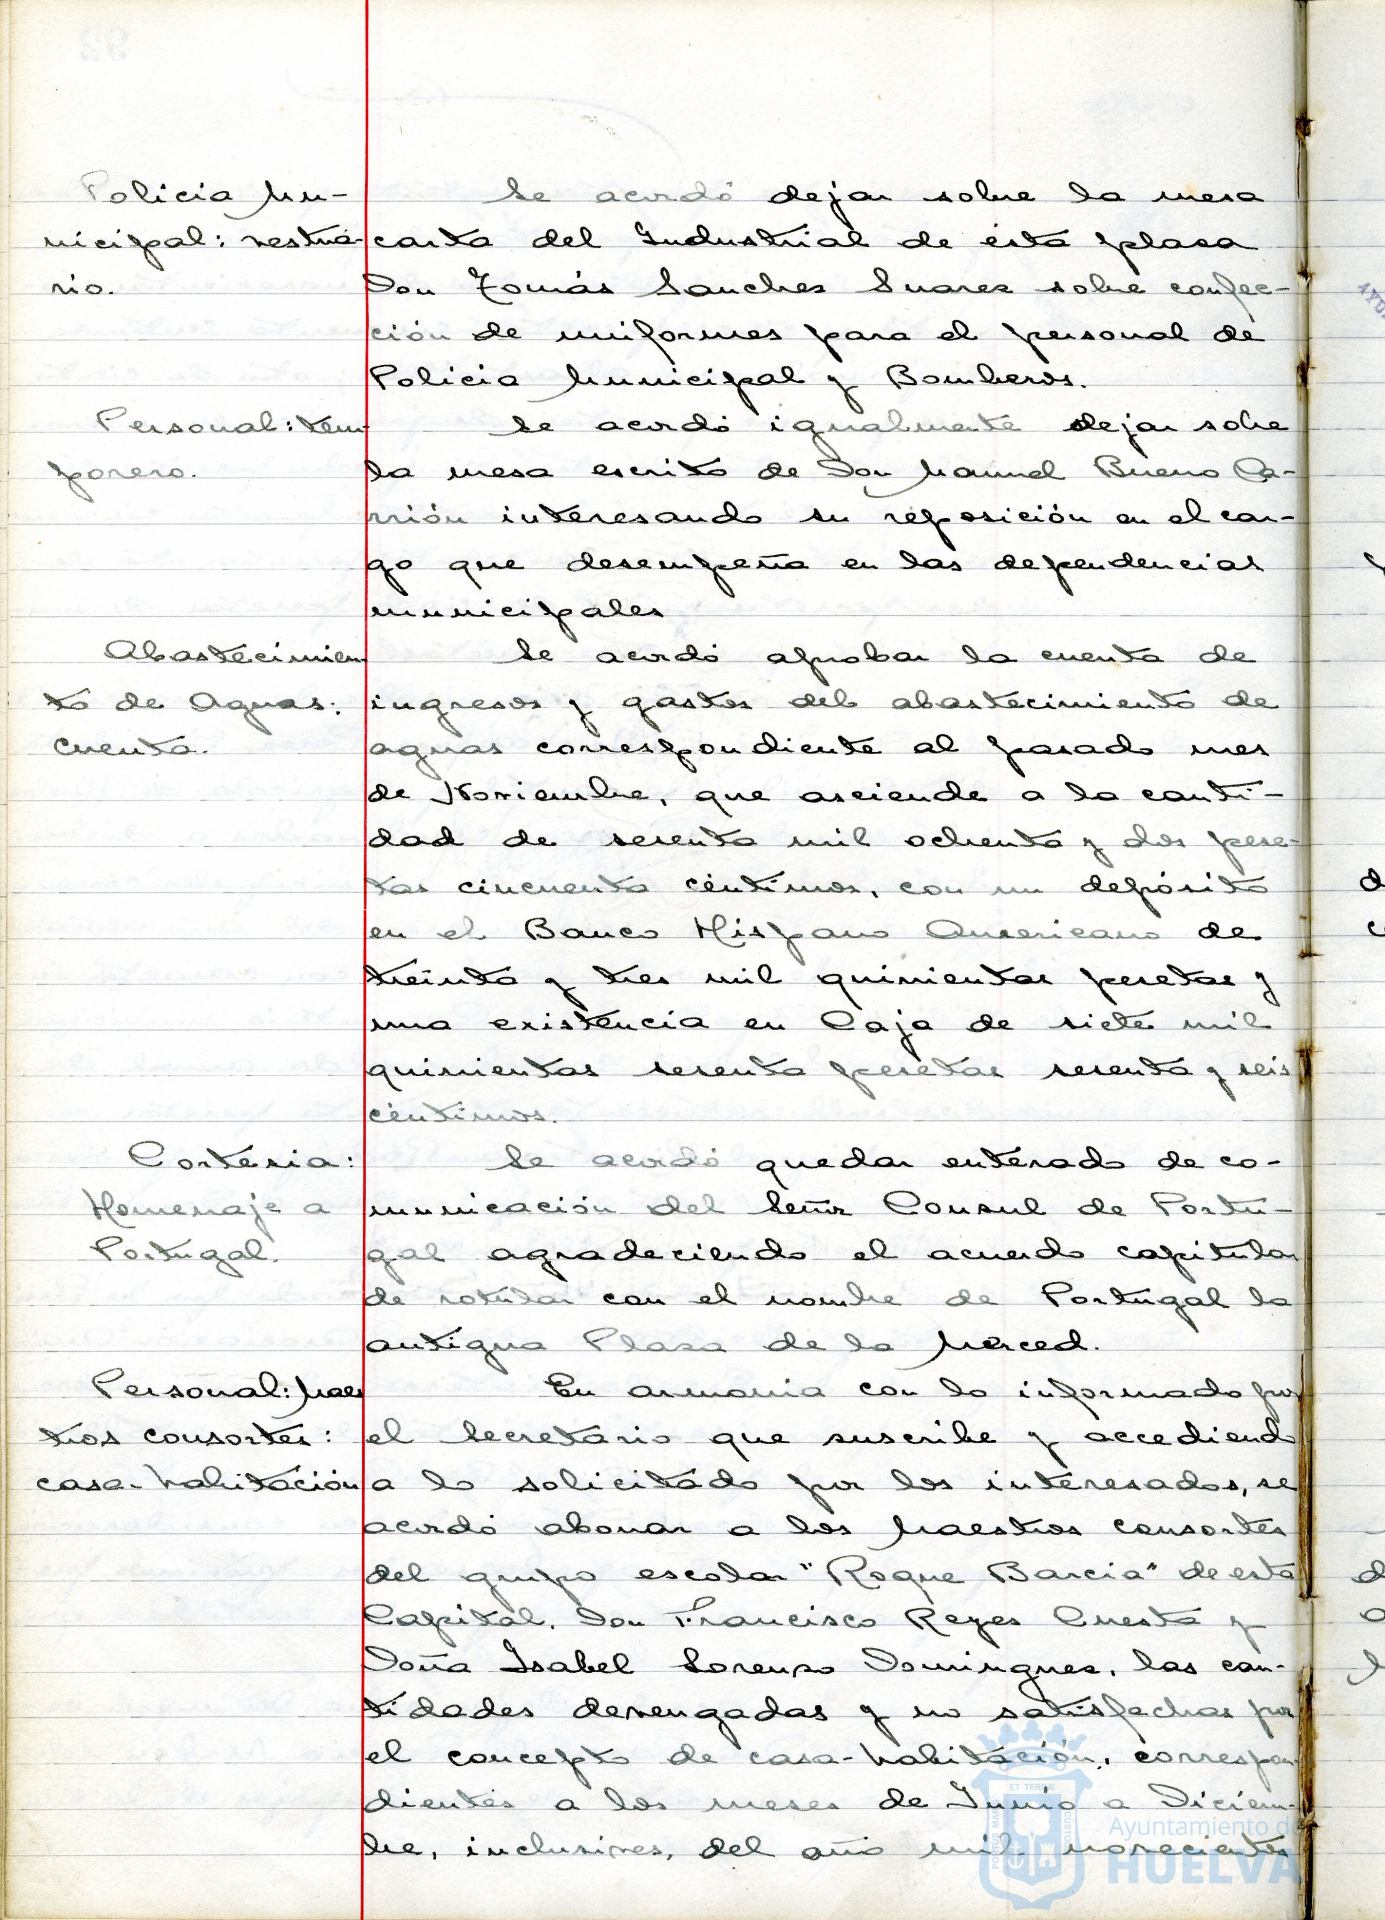 Policia Mu-
nicipal: vestua-
rio.
Se acordó dejar sobre la mesa
carta del Industrial de ésta plaza
Don Tomás Sanchez Suarez sobre confec-
ción de uniformes para el personal de
Policia Municipal y Bomberos.
Personal: tem
porero.
Se acordó igualmente dejar sobre
la mesa escrito de Don Manuel Bueno Ca-
rrión interesando su reposición en el car-
go que desempeña en las dependencias
municipales
Abastecimien
to de Aguas:
cuenta.
Se acordó aprobar la cuenta de
ingresos y gastos del abastecimiento de
aguas correspondiente al pasado mes
de Noviembre, que asciende a la canti-
dad de sesenta mil ochenta y dos pese-
tas cincuenta céntimos, con un depósito
en el Banco Hispano Americano de
treinta y tres mil quinientas pesetas y
una existencia en Caja de siete mil
quinientas sesenta pesetas sesenta y seis
céntimos.
Cortesia:
Homenaje a
Portugal.
Se acordó quedar enterado de co-
municación del Señor Consul de Portu-
gal agradeciendo el acuerdo capitular
de rotular con el nombre de Portugal la
antigua Plaza de la Merced.
Personal: Maes
tros consortes:
casa-habitación
En armonia con lo informado por
el Secretario que suscribe y accediendo
a lo solicitado por los interesados, se
acordó abonar a los Maestros consortes
del grupo escolar "Roque Barcia" de esta
Capital, Don Francisco Reyes Cuesta y
Doña Isabel Lorenzo Dominguez, las can-
tidades devengadas y no satisfechas por
el concepto de casa-habitación, correspon
dientes a los meses de Junio a Diciem-
bre, inclusives, del año mil novecientos
Ayuntamiento de
HUELVA